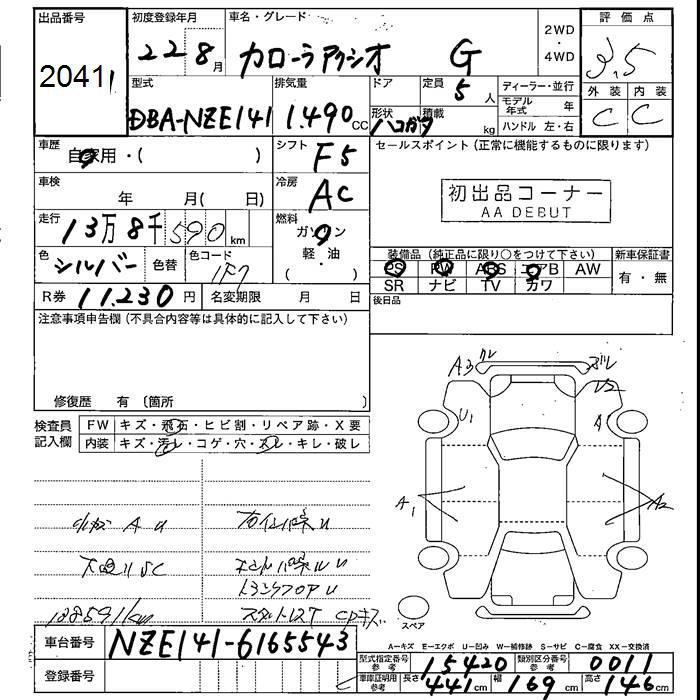 出品番号
20411
初度登録年月
22 8月
車名・グレード
カローラアクシオ G
2WD
・
4WD
評価点
3.5
外装 内装
C C
型式
DBA-NZE141
排気量
1.490cc
ドア
形状
ハコガタ
定員
5人
積載
kg
ディーラー・並行
モデル年式 年
ハンドル 左・右
車歴
自家用・( )
シフト
F5
セールスポイント（正常に機能するものに限ります）
車検
年 月( 日)
冷房
AC
初出品コーナー
AA DEBUT
走行
13万8千590km
燃料
ガソリン
軽・油
・( )
色
シルバー
色替
色コード
1F7
装備品（純正品に限り○をつけて下さい）
PS PW ABS エアB AW
SR ナビ TV カワ
新車保証書
有・無
R券
11.230円
名変期限 月 日
後日品
注意事項申告欄（不具合内容等は具体的に記入して下さい）
修復歴 有（箇所
検査員
記入欄
FW キズ・飛石・ヒビ割・リペア跡・X要
内装 キズ・汚レ・コゲ・穴・スレ・キレ・破レ
A3
U1
A1
A1
A2
スペア
小キズ A U
下廻りSC
138591km
トランクフロアU
車台番号
NZE141-6165543
登録番号
A-キズ E-エクボ U-凹み W-補修跡 S-サビ C-腐食 XX-交換済
型式指定番号
参考
15420
類別区分番号
参考
0011
車庫証明用
参考
長さ 441cm 幅 169cm 高さ 146cm